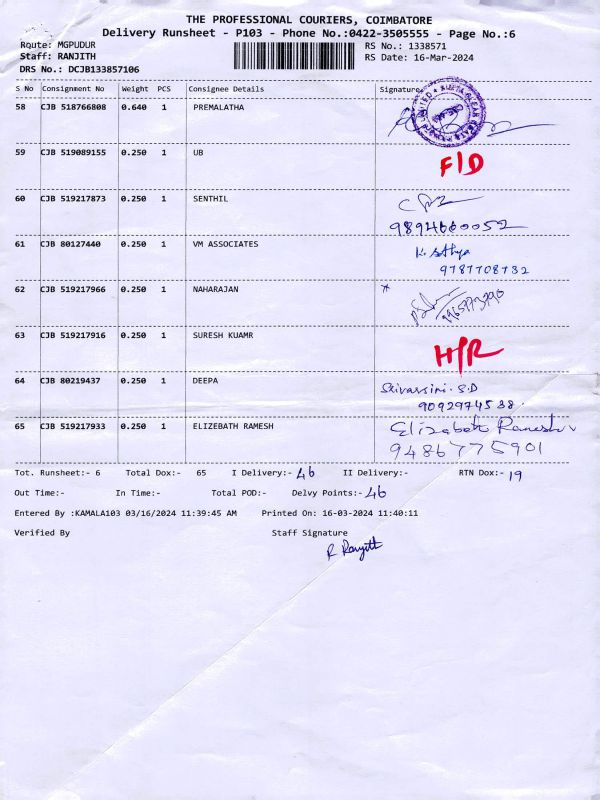 THE PROFESSIONAL COURIERS, COIMBATORE
Delivery Runsheet - P103 - Phone No.:0422-3505555 - Page No.:6
Route: MGPUDUR RS No.: 1338571
Staff: RANJITH RS Date: 16-Mar-2024
DRS No.: DCJB133857106
S No Consignment No Weight PCS Consignee Details Signature
58 CJB 518766808 0.640 1 PREMALATHA
59 CJB 519089155 0.250 1 UB F/D
60 CJB 519217873 0.250 1 SENTHIL
9894660052
61 CJB 80127440 0.250 1 VM ASSOCIATES K. Sathya
9787708732
62 CJB 519217966 0.250 1 NAHARAJAN
63 CJB 519217916 0.250 1 SURESH KUAMR H/R
64 CJB 80219437 0.250 1 DEEPA Srivarsini. S.D
9092974538.
65 CJB 519217933 0.250 1 ELIZEBATH RAMESH Elizabath Ramesh
9486775901
Tot. Runsheet:- 6 Total Dox:- 65 I Delivery:- 46 II Delivery:- RTN Dox:- 19
Out Time:- In Time:- Total POD:- Delvy Points:- 46
Entered By :KAMALA103 03/16/2024 11:39:45 AM Printed On: 16-03-2024 11:40:11
Verified By Staff Signature
R Ranjith